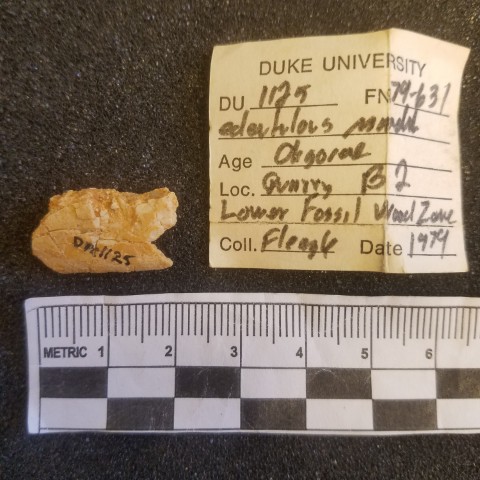 DUKE UNIVERSITY
DU 1125 FN 79-631
edentulous mandi
Age Oligocene
Loc. Quarry B 2
Lower Fossil Wood Zone
Coll. Fleagle Date 1979
DPC 1125
METRIC 1 2 3 4 5 6